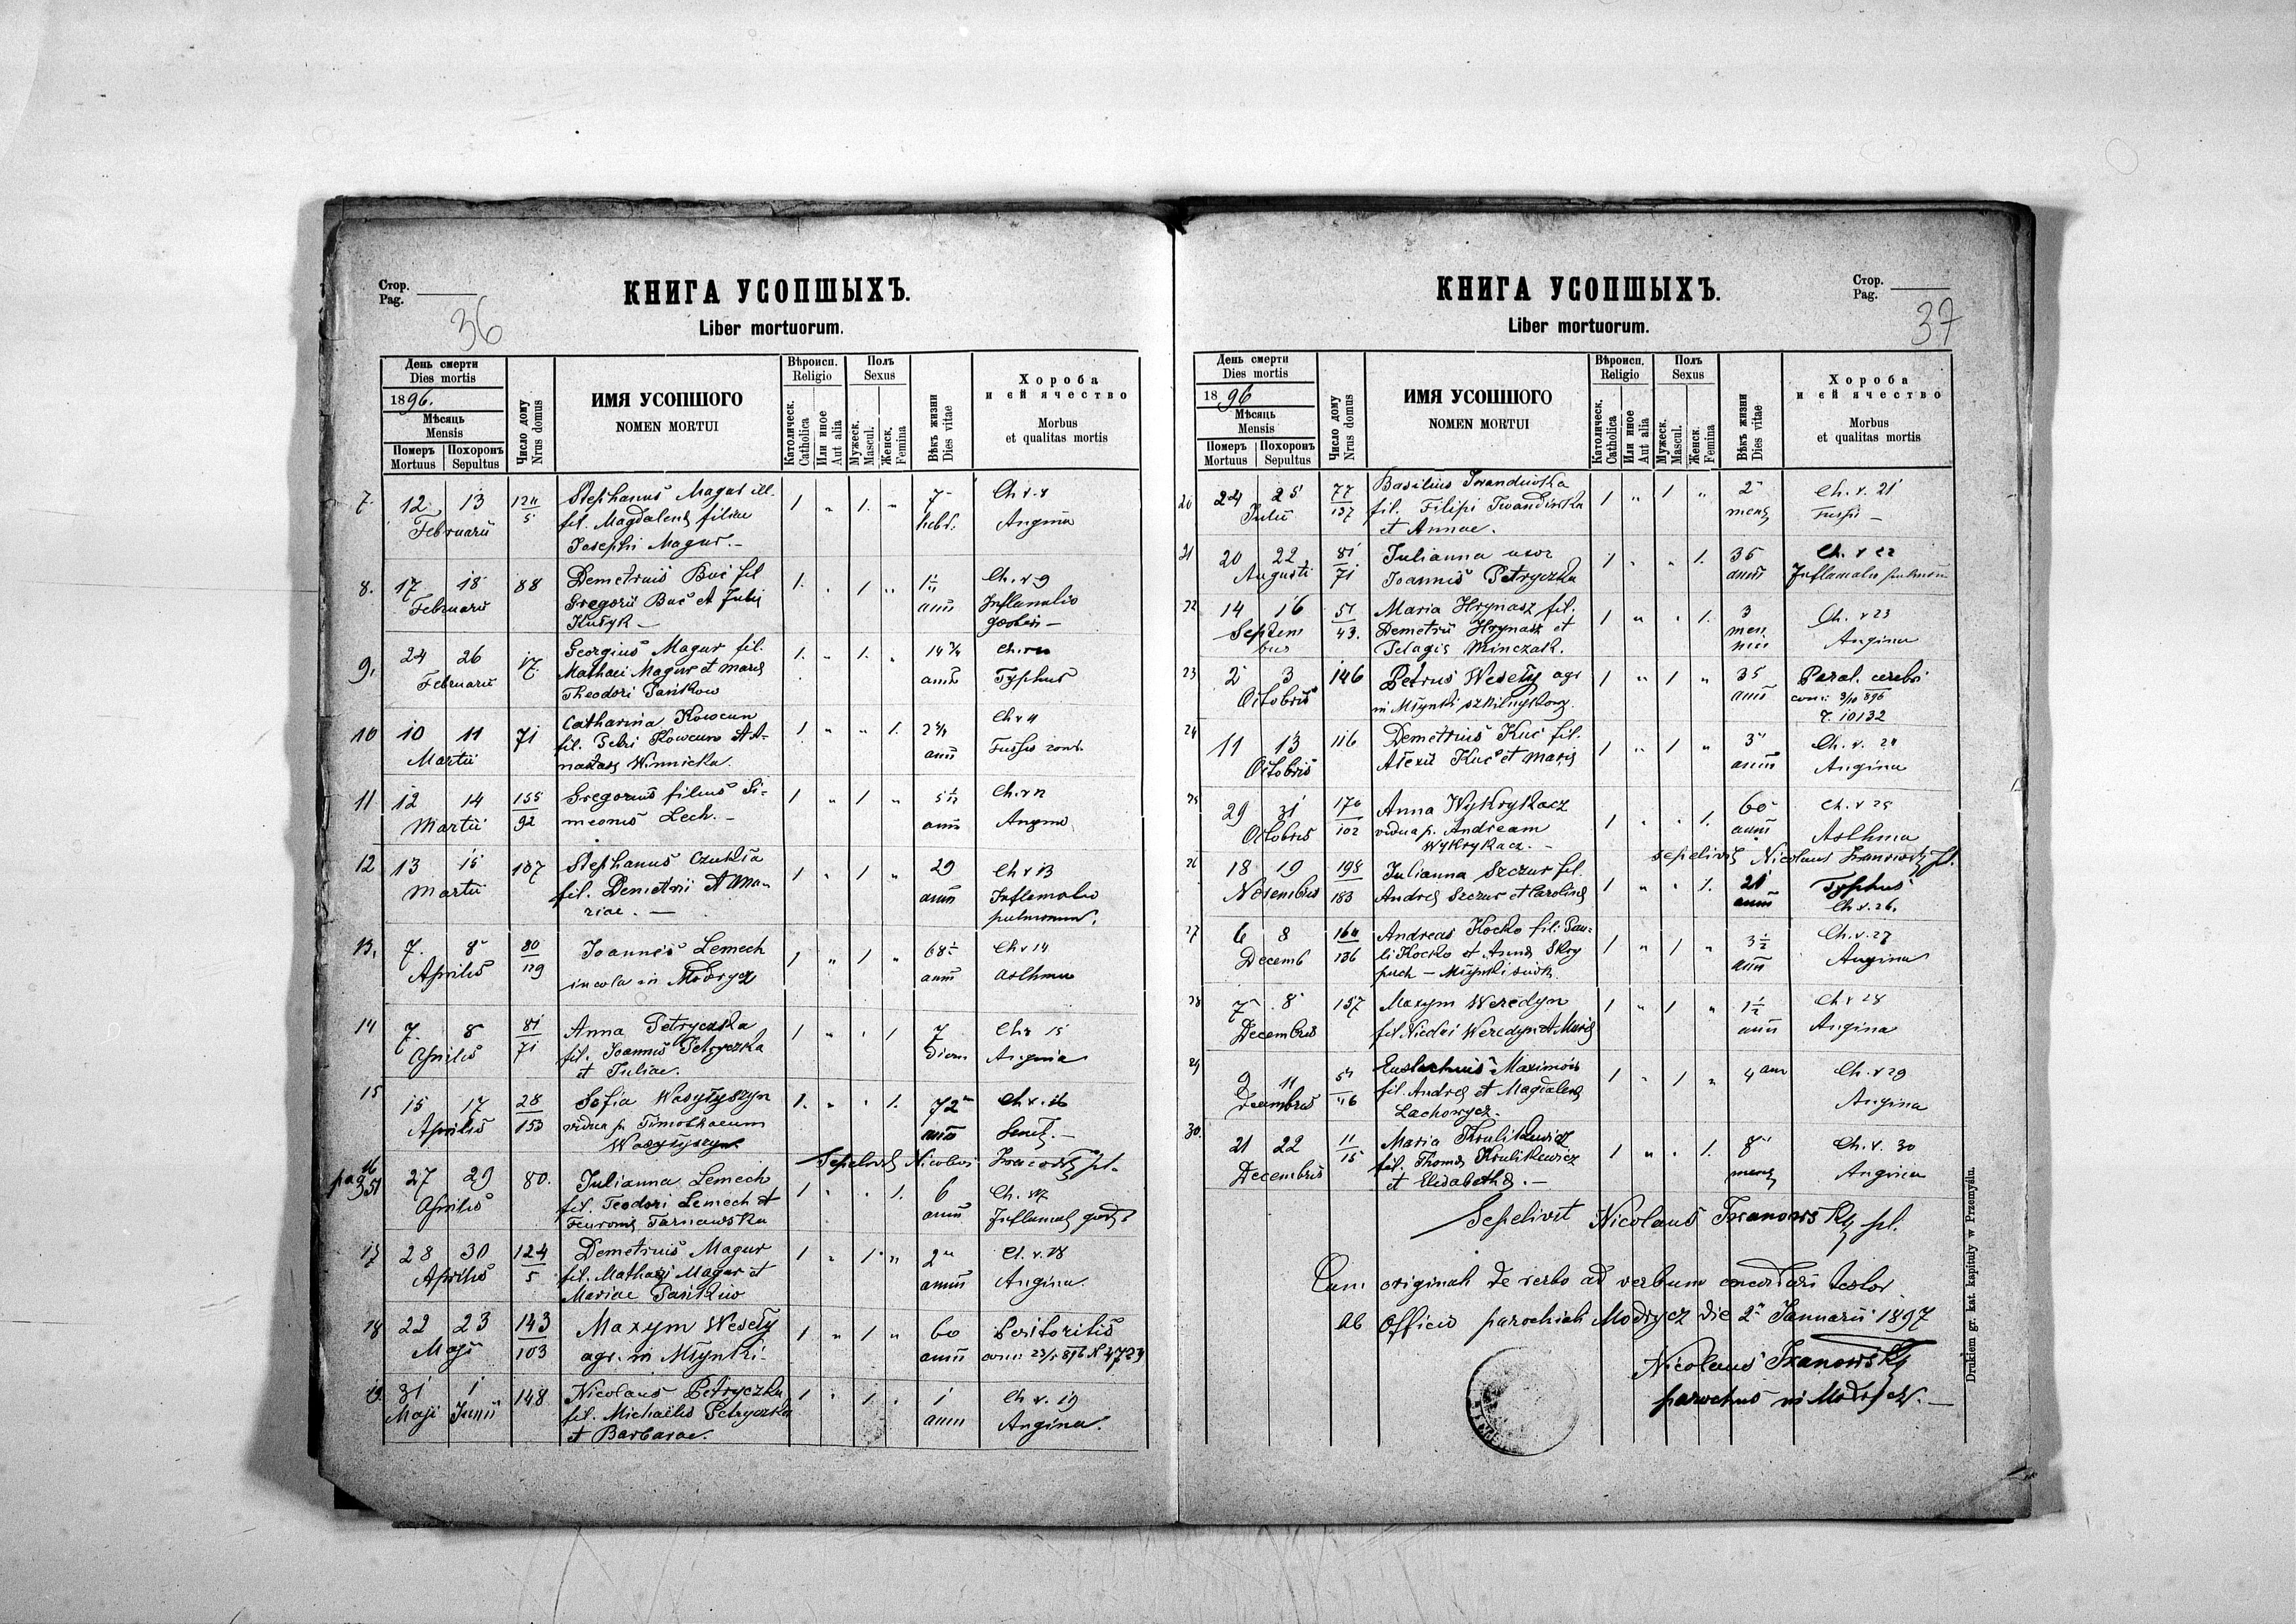 Стор.
Pag.
36
КНИГА УСОПШЫХЪ.
Liber mortuorum.
День смерти
Dies mortis
1896.
Мѣсяць
Mensis
Померъ
Mortuus
Похоронъ
Sepultus
Число дому
Nrus domus
ИМЯ УСОПШОГО
NOMEN MORTUI
Вѣроисп.
Religio
Католическ.
Catholica
Или иное
Aut alia
Полъ
Sexus
Мужеск.
Mascul.
Женск.
Femina
Вѣкъ жизни
Dies vitae
Хороба
и ей ячество
Morbus
et qualitas mortis
7. 12 13 124/5 Stephanus Magur ill. 1 „ 1. „ 7
Februarii fil. Magdalenę filiae hebd. Angina
Josephi Magur.–
8. 17 18 88 Demetrius Buć fil 1. „ 1 „ Ch. v 9
Februarii Gregorii Buć et Julię anni Inflamatio
Kusyk –
9. 24 26 17. Georgius Magur fil. 1. „ 1. „ 14 3/4
Februarii Mathaei Magur et Marię anni Typhus
Theodori Pańkow
10 10 11 71 Catharina Kowcun 1 „ „ 1. Ch v 11
Martii fil. Petri Kowcun et A- anni Tussis
nastasię Winnicka.
11 12 14 155/92 Gregorius filius Si- 1 „ 1 „ Ch. v 12
Martii meonis Lech. – anni Angina
12 13 15 107 Stephanus Czuhla 1 „ 1 „ 29 Ch v 13
Martii fil. Demetrii et Ma- anni Inflamatio
riae. – pulmonum.
13. 7. 8 80/129 Joannes Lemech 1 „ 1 „ 68 1/2 Ch v 14
Aprilis incola in Modrycz anni Asthma
14 7. 8 81/71 Anna Petryczka 1 „ „ 1 7 Ch v 15
Aprilis fil. Joannis Petryczka dierum Angina
et Juliae.
15 15 17 28/153 Sofia Wasyłyszyn 1. „ „ 1. 72 Ch v. 16
Aprilis vidua p. Timotheum anni
Wasyłyszyn
Sepelivit Nicolaus Iwanowsky pl.
16 27 29 80. Julianna Lemech 1 „ „ 1. 6 Ch. v 17
Aprilis fil. Teodori Lemech et anni
Tarnawska
17 28 30 124/5 Demetrius Magur 1 „ 1 „ 2 Ch. v. 18
Aprilis fil. Mathaei Magur et annii Angina.
Mariae Pańkiw
18 22 23 143/103 Maxym Wesoły 1 „ 1 „ 60 Peritoritis
Maji agr. in Młynki. anni 23/5 896 N 4723
19. 31 1 148 Nicolaus Petryczka 1 „ 1 „ 1 Ch v. 19
Maji Junii fil. Michaelis Petryczka anni Angina.
et Barbarae.
Стор.
Pag.
37
КНИГА УСОПШЫХЪ.
Liber mortuorum.
День смерти
Dies mortis
1896
Мѣсяць
Mensis
Померъ
Mortuus
Похоронъ
Sepultus
Число дому
Nrus domus
ИМЯ УСОПШОГО
NOMEN MORTUI
Вѣроисп.
Religio
Католическ.
Catholica
Или иное
Aut alia
Полъ
Sexus
Мужеск.
Mascul.
Женск.
Femina
Вѣкъ жизни
Dies vitae
Хороба
и ей ячество
Morbus
et qualitas mortis
20 24 25 77/137 Basilius Iwandiwska 1 „ 1 „ 2 Ch. v. 21
Julii fil. Filipi Iwandiwska mens Tussis –
et Annae.
21 20 22 81/71 Julianna uxor 1 „ „ 1. 35 Ch. v 22
Augusti Joannis Petryczka anni Inflamatio pulmonum
22 14 16 51/43. Maria Hrynasz fil. 1 „ „ 1. 3 Ch. v 23
Septem Demetrii Hrynasz et men. Angina
bris Pelagię Minczak.
23 2 3 146 Petrus Wesoły agr 1 „ 1 „ 35 Paral. cerebri
Octobris in Młynki szkilnykowy. anni 3/10 896
10132
24 11 13 116 Demetrius Kuć fil. 1 „ 1 „ 3 Ch. v. 24
Octobris Alexii Kuć et Marię anni Angina
25 29 31 170/102 Anna Wykrykacz 1 „ „ 1. 60 Ch. v 25
Octobris vidua p. Andream anni Asthma
Wykrykacz. –
Sepelivit Nicolaus Iwanowsky pl.
26 18 19 195/183 Julianna Szczur fil. 1 „ „ 1. 21 Typhus
Novembris Andreę Szczur et Carolinę anni Ch. v. 26.
27 6 8 164/136 Andreas Kocko fil: Pau- 1 „ 1 „ 3 1/2 Ch. v. 27
Decemb li Kocko et Annę Skry anni Angina
puch –
28 7 8 157 Maxym Weredyn 1 „ 1 „ 1 1/2 Ch v 28
Decembris fil. Weredyn et Marię anni Angina
29 9 11 54/116 Eustachius Maximow 1 „ 1 „ 4 ann Ch. v 29
Decembris fil. Andreę et Magdalenę Angina
Lachowycz.
30. 21 22 11/15 Maria Krulikewicz 1 „ „ 1. 8 Ch. v. 30
Decembris fil. Thomę Krulikewicz mens Angina
et Elisabethę. –
Sepelivit Nicolaus Iwanowsky pl.
Cum originali de verbo ad verbum concordare testor
Ab Officio parochiali Modrycz die 2 Januarii 1897
Nicolaus Iwanowsky
parochus in Modrycz. –
Drukiem gr. kat. kapituły w Przemyślu.